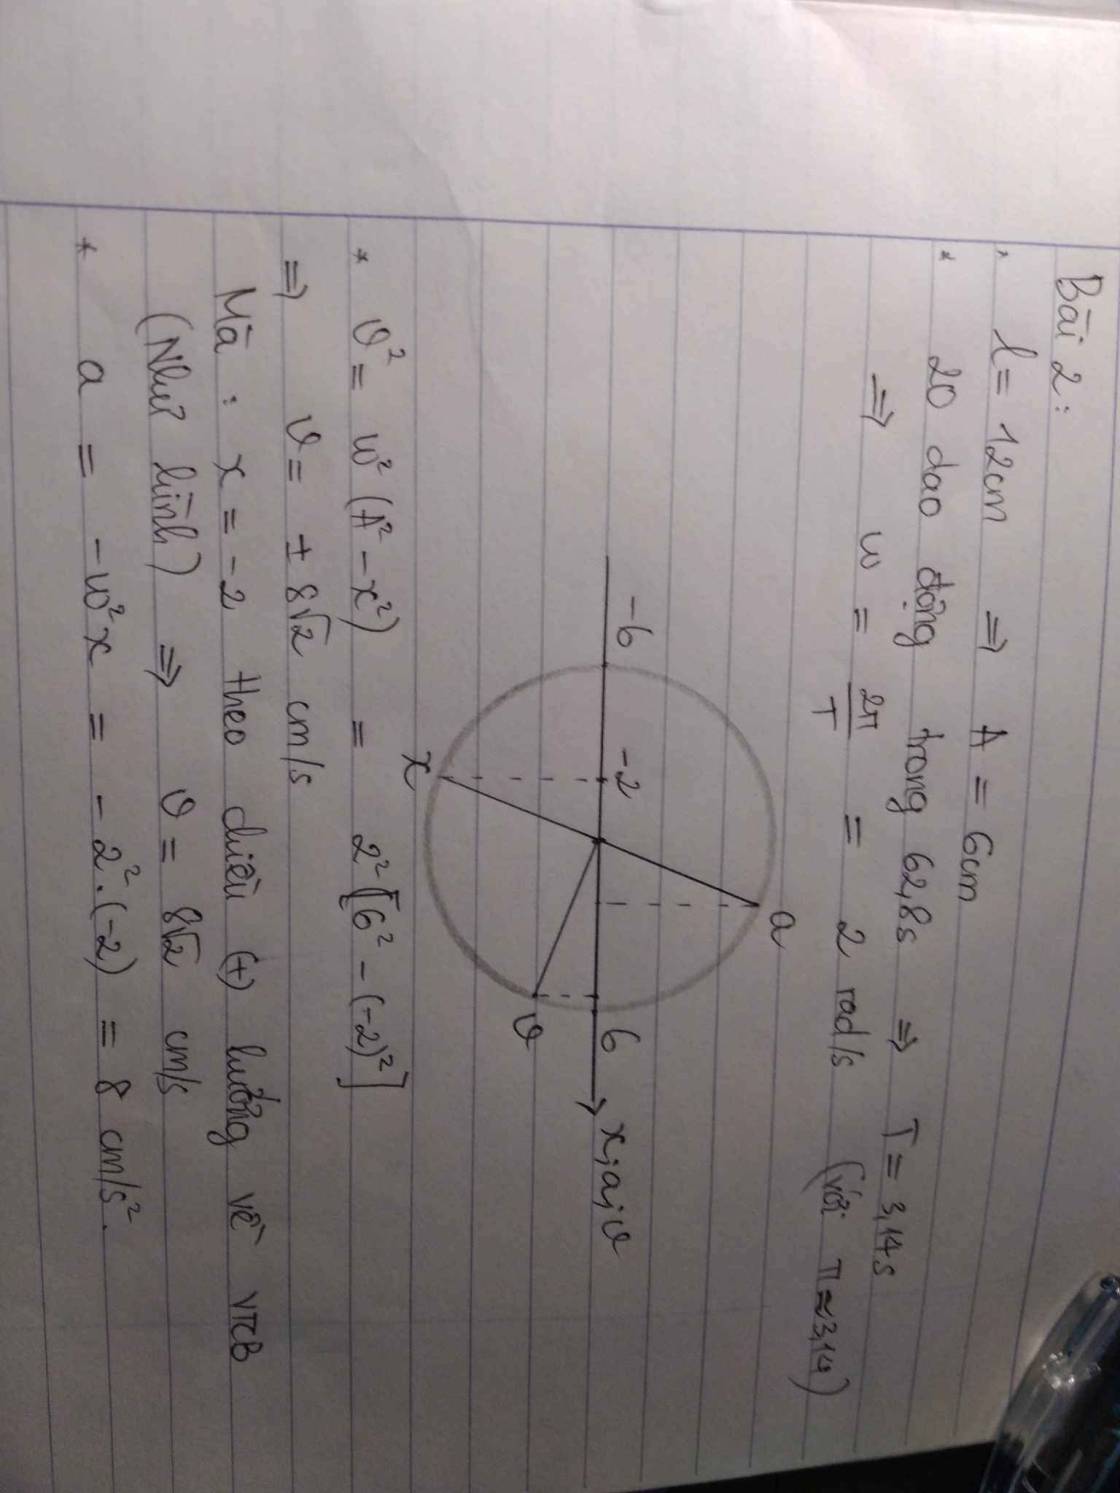 Bài 2:
* l = 12cm ⇒ A = 6cm
* 20 dao động trong 62,8s ⇒ T = 3,14s
⇒ ω = 2π/T = 2 rad/s (với π≈3,14)
a
-6 -2 6 x;a;v
x v
* v² = ω²(A² - x²) = 2²[6² - (-2)²]
⇒ v = ± 8√2 cm/s
Mà : x = -2 theo chiều (+) hướng về VTCB
(Như hình) ⇒ v = 8√2 cm/s
* a = -ω²x = - 2².(-2) = 8 cm/s².